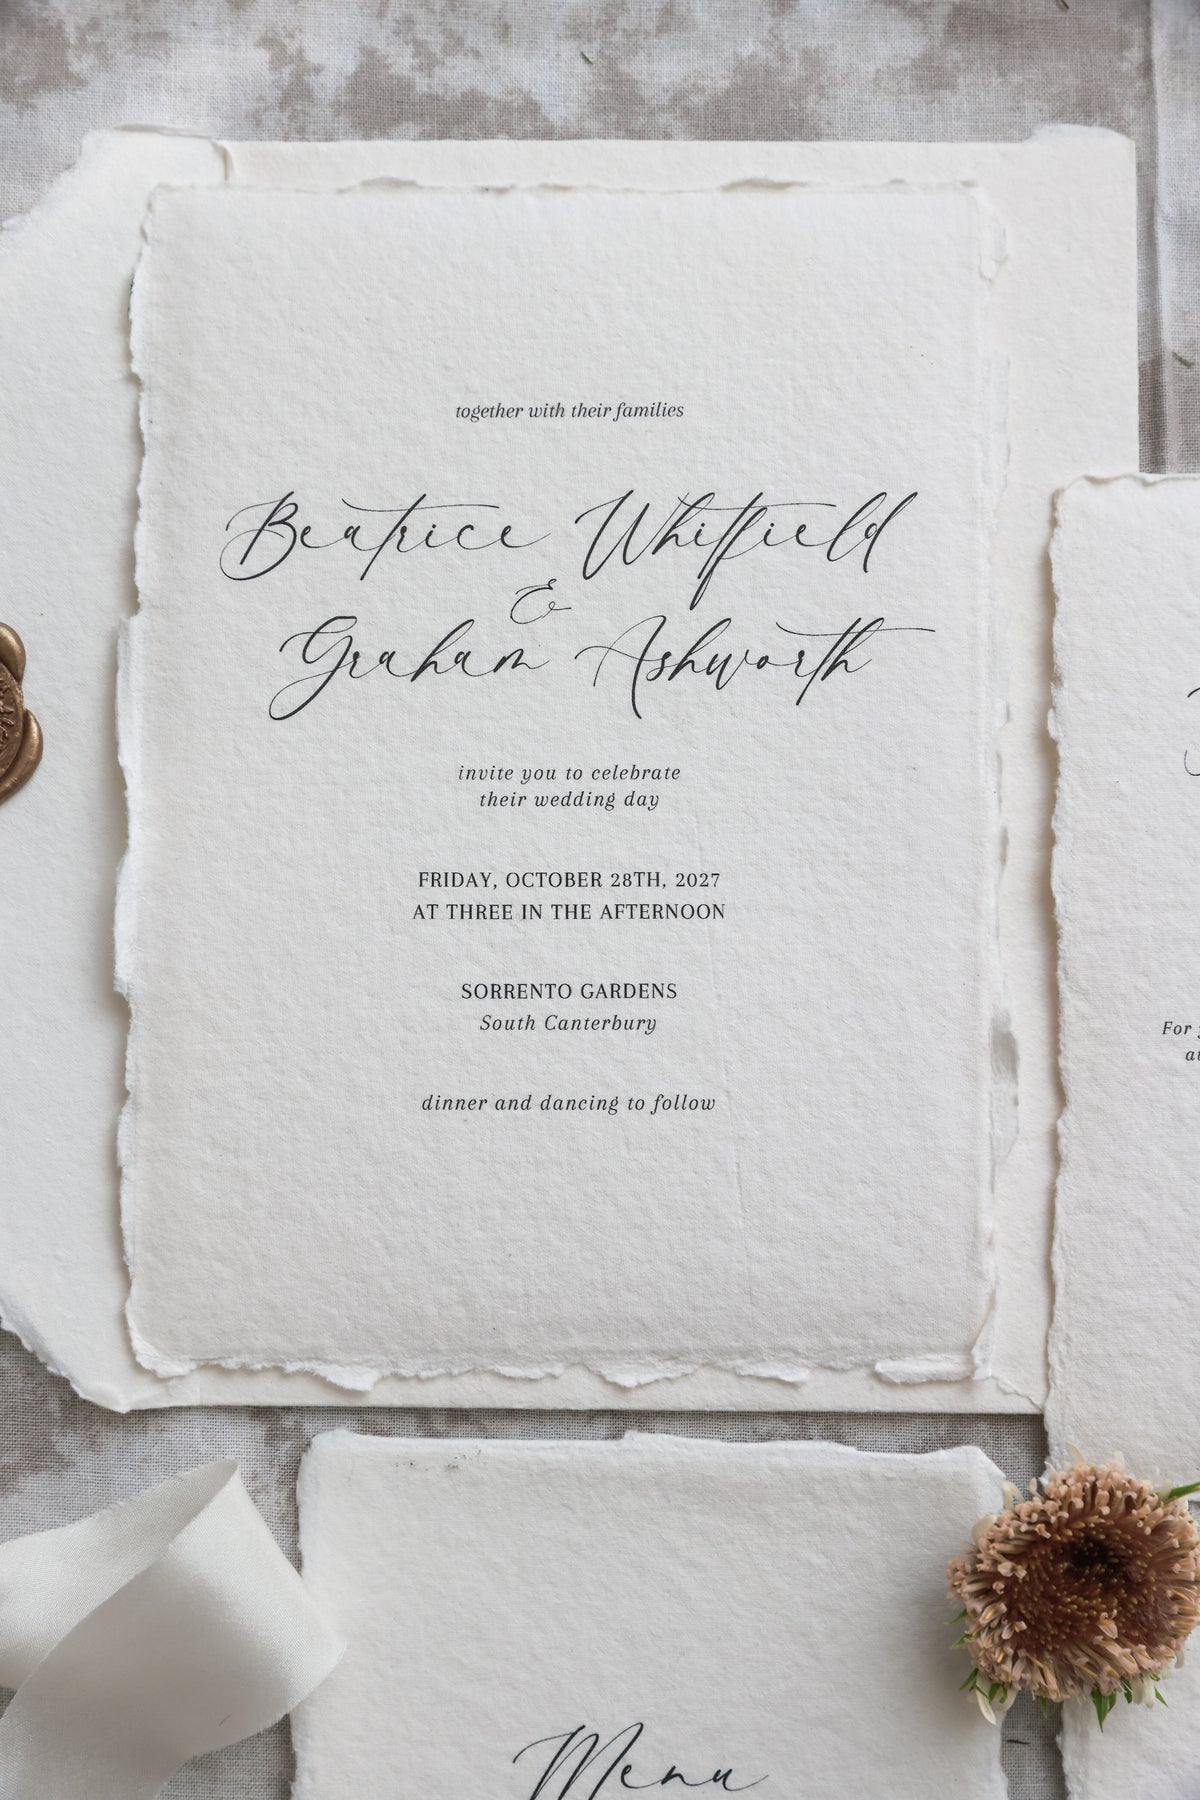 together with their families
Beatrice Whitfield
&
Graham Ashworth
invite you to celebrate
their wedding day
FRIDAY, OCTOBER 28TH, 2027
AT THREE IN THE AFTERNOON
SORRENTO GARDENS
South Canterbury
dinner and dancing to follow
For
Menu